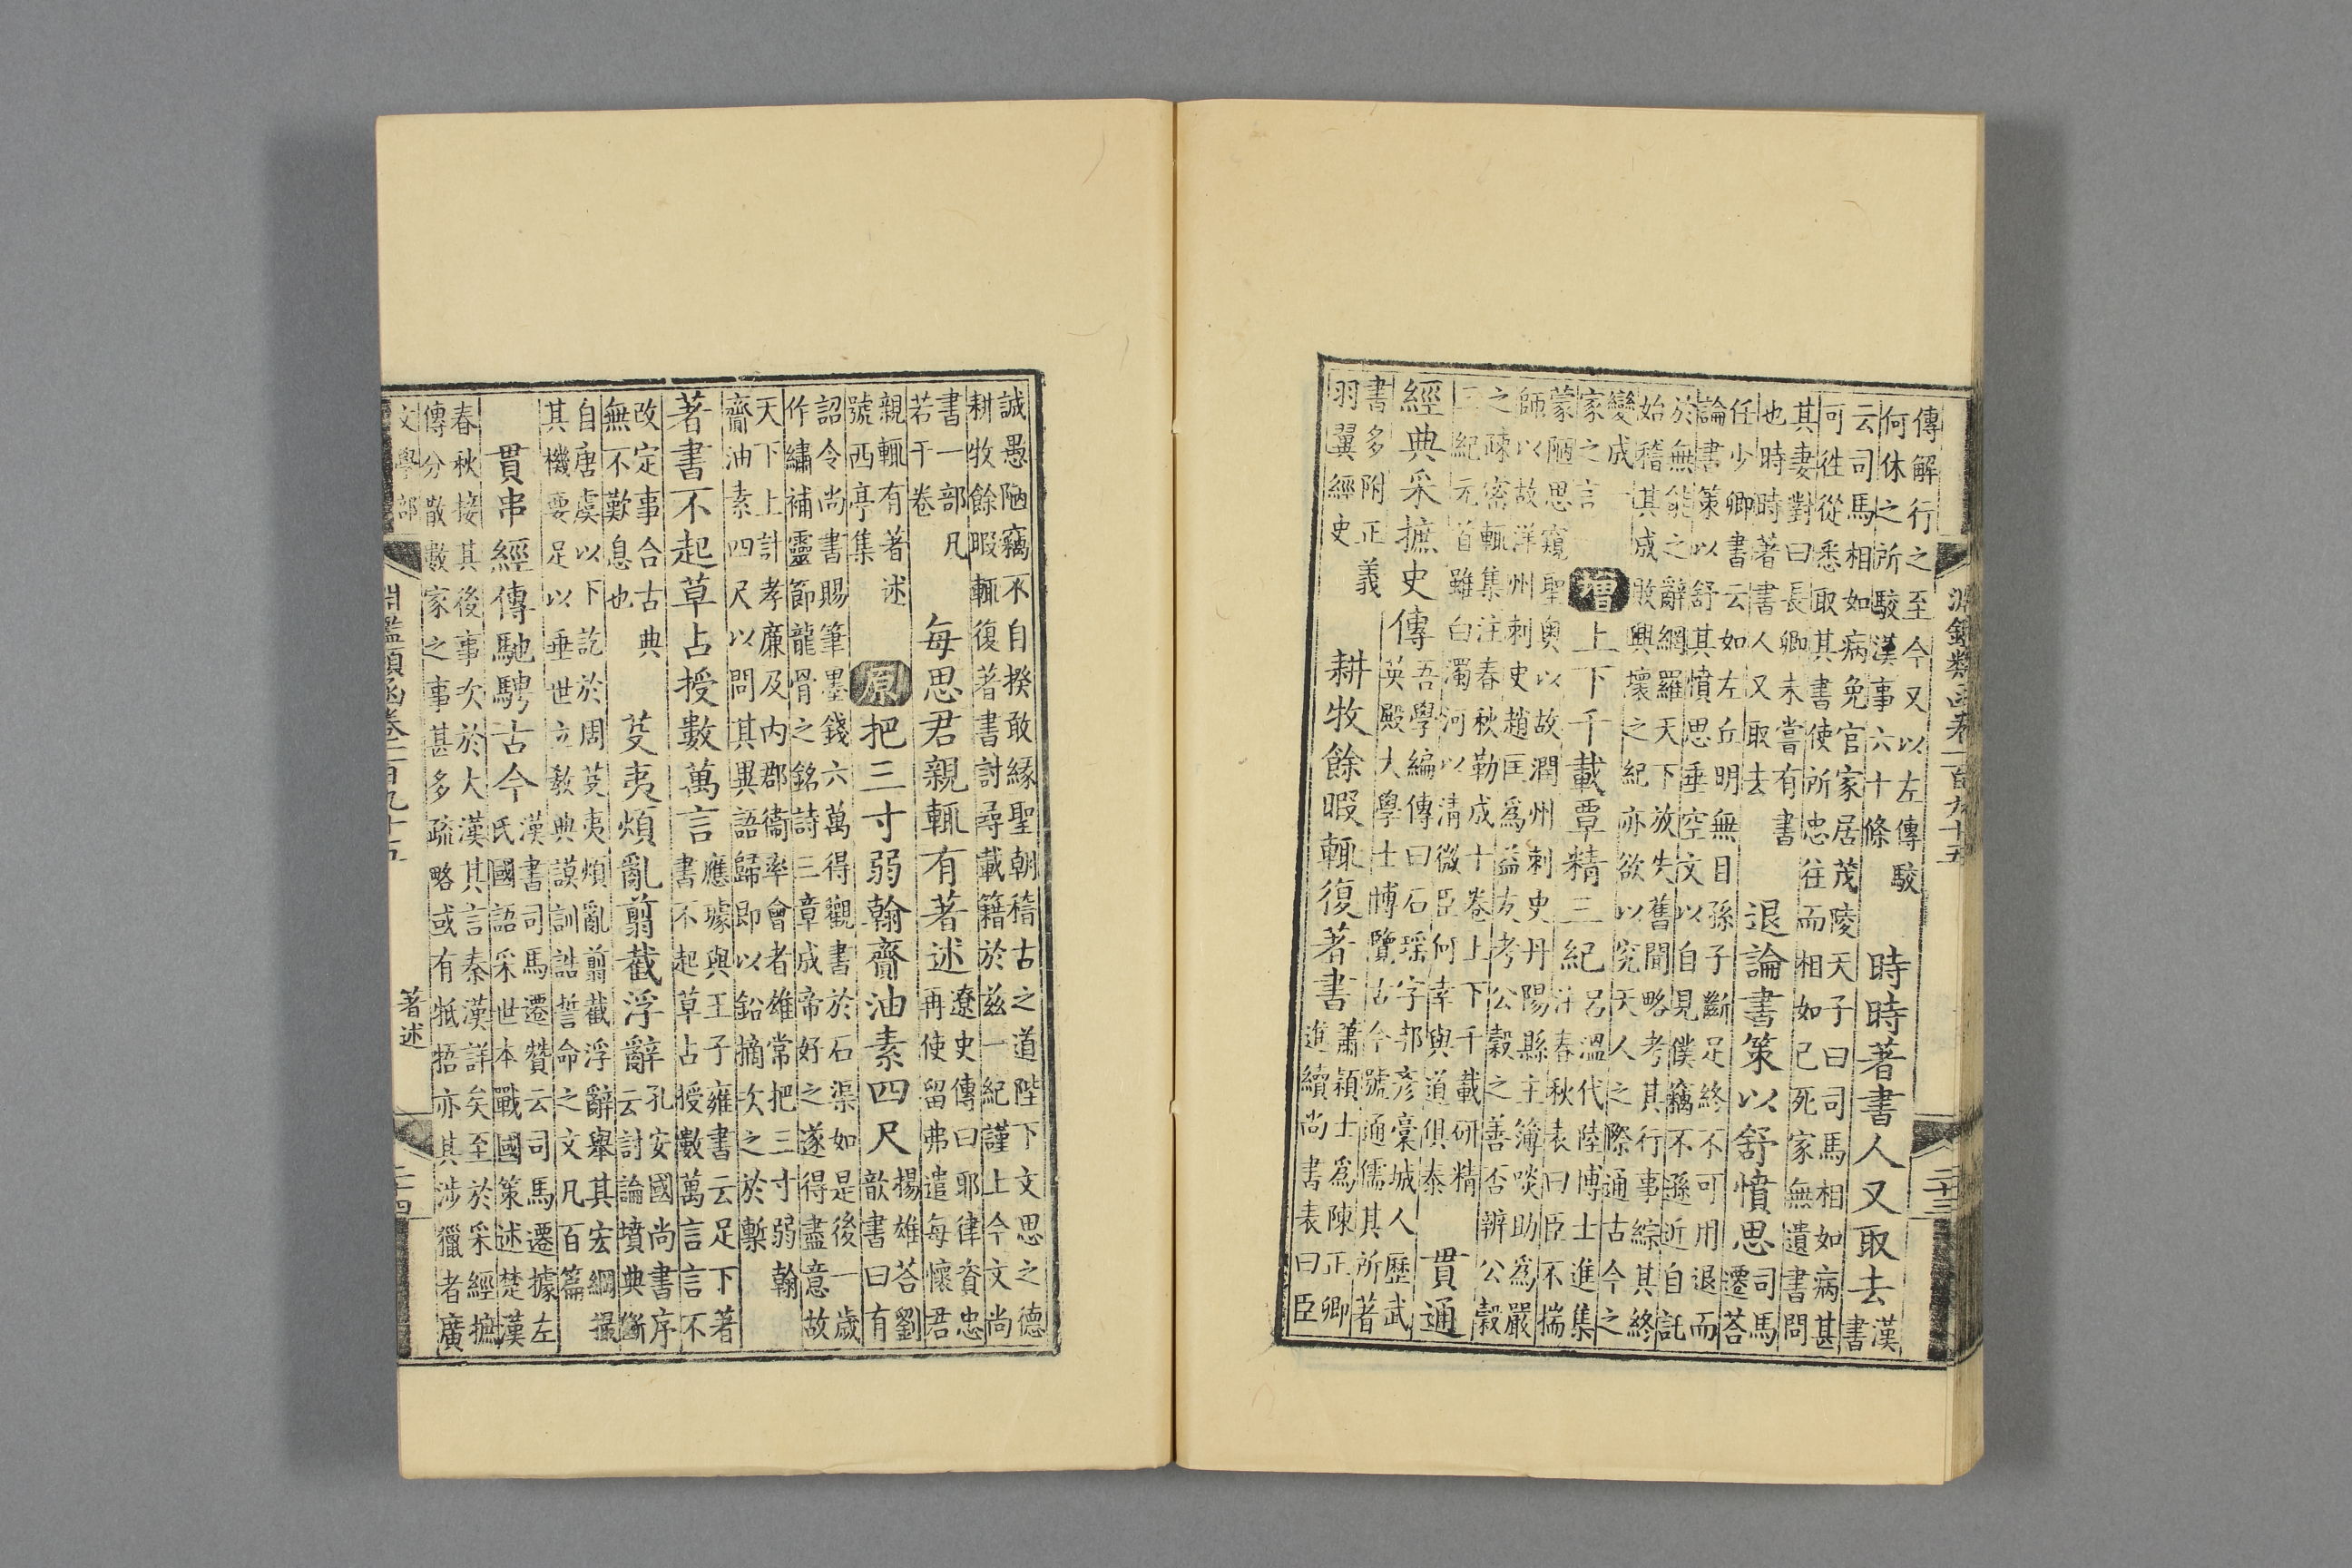 淵鑑類函卷一百九十五 二十三
傳解行之至今又以左傳駮
何休之所駮漢事六十條
時時著書人又取去
漢
書
云司馬相如病免官家居茂陵天子曰司馬相如病甚
可徃從悉取其書使所忠往而相如已死家無遺書問
其妻對曰長卿未嘗有書
也時時著書人又取去
退論書策以舒憤思
司馬
遷荅
任少卿書云如左丘明無目孫子斷足終不可用退而
論書策以舒其憤思垂空文以自見僕竊不遜近自託
於無能之辭網羅天下放失舊聞略考其行事綜其終
始稽其成敗興壞之紀亦欲以究天人之際通古今之
變成一
家之言
增上下千載覃精三紀
呂溫代陸博士進集
注春秋表曰臣不揣
蒙陋思窺聖奧以故潤州刺史丹陽縣主簿啖助爲嚴
師以故洋州刺史趙匡爲益友考公穀之善否辨公穀
之踈密輒集注春秋勒成十卷上下千載研精
三紀元首雖白濁河以清微臣何幸與道俱泰
貫通
經典采摭史傳
吾學編傳曰石瑶字邦彥藁城人歷武
英殿大學士博覽古今號通儒其所著
書多附正義
羽翼經史
耕牧餘暇輒復著書
蕭穎士爲陳正卿
進續尚書表曰臣
誠愚陋竊不自揆敢緣聖朝稽古之道陛下文思之德
耕牧餘暇輒復著書討尋載籍於茲一紀謹上今文尚
書一部凡
若干卷
每思君親輒有著述
遼史傳曰耶律資忠
再使留弗遣每懷君
親輒有著述
號西亭集
原把三寸弱翰齎油素四尺
揚雄荅劉
歆書曰有
詔令尚書賜筆墨錢六萬得觀書於石渠如是後一歲
作繡補靈節龍骨之銘詩三章成帝好之遂得盡意故
天下上計孝廉及内郡衞率會者雄常把三寸弱翰
齎油素四尺以問其異語歸即以鉛摘次之於槧
著書不起草占授數萬言
應璩與王子雍書云足下著
書不起草占授數萬言言不
改定事合古典
無不歎息也
芟夷煩亂翦截浮辭
孔安國尚書序
云討論墳典斷
自唐虞以下訖於周芟夷煩亂翦截浮辭舉其宏綱撮
其機要足以垂世立敎典謨訓誥誓命之文凡百篇
貫串經傳馳騁古今
漢書司馬遷贊云司馬遷據左
氏國語采世本戰國策述楚漢
春秋接其後事次於大漢其言秦漢詳矣至於采經摭
傳分散數家之事甚多疏略或有牴牾亦其涉獵者廣
文學部 淵鑑類函卷一百九十五 著述 二十四